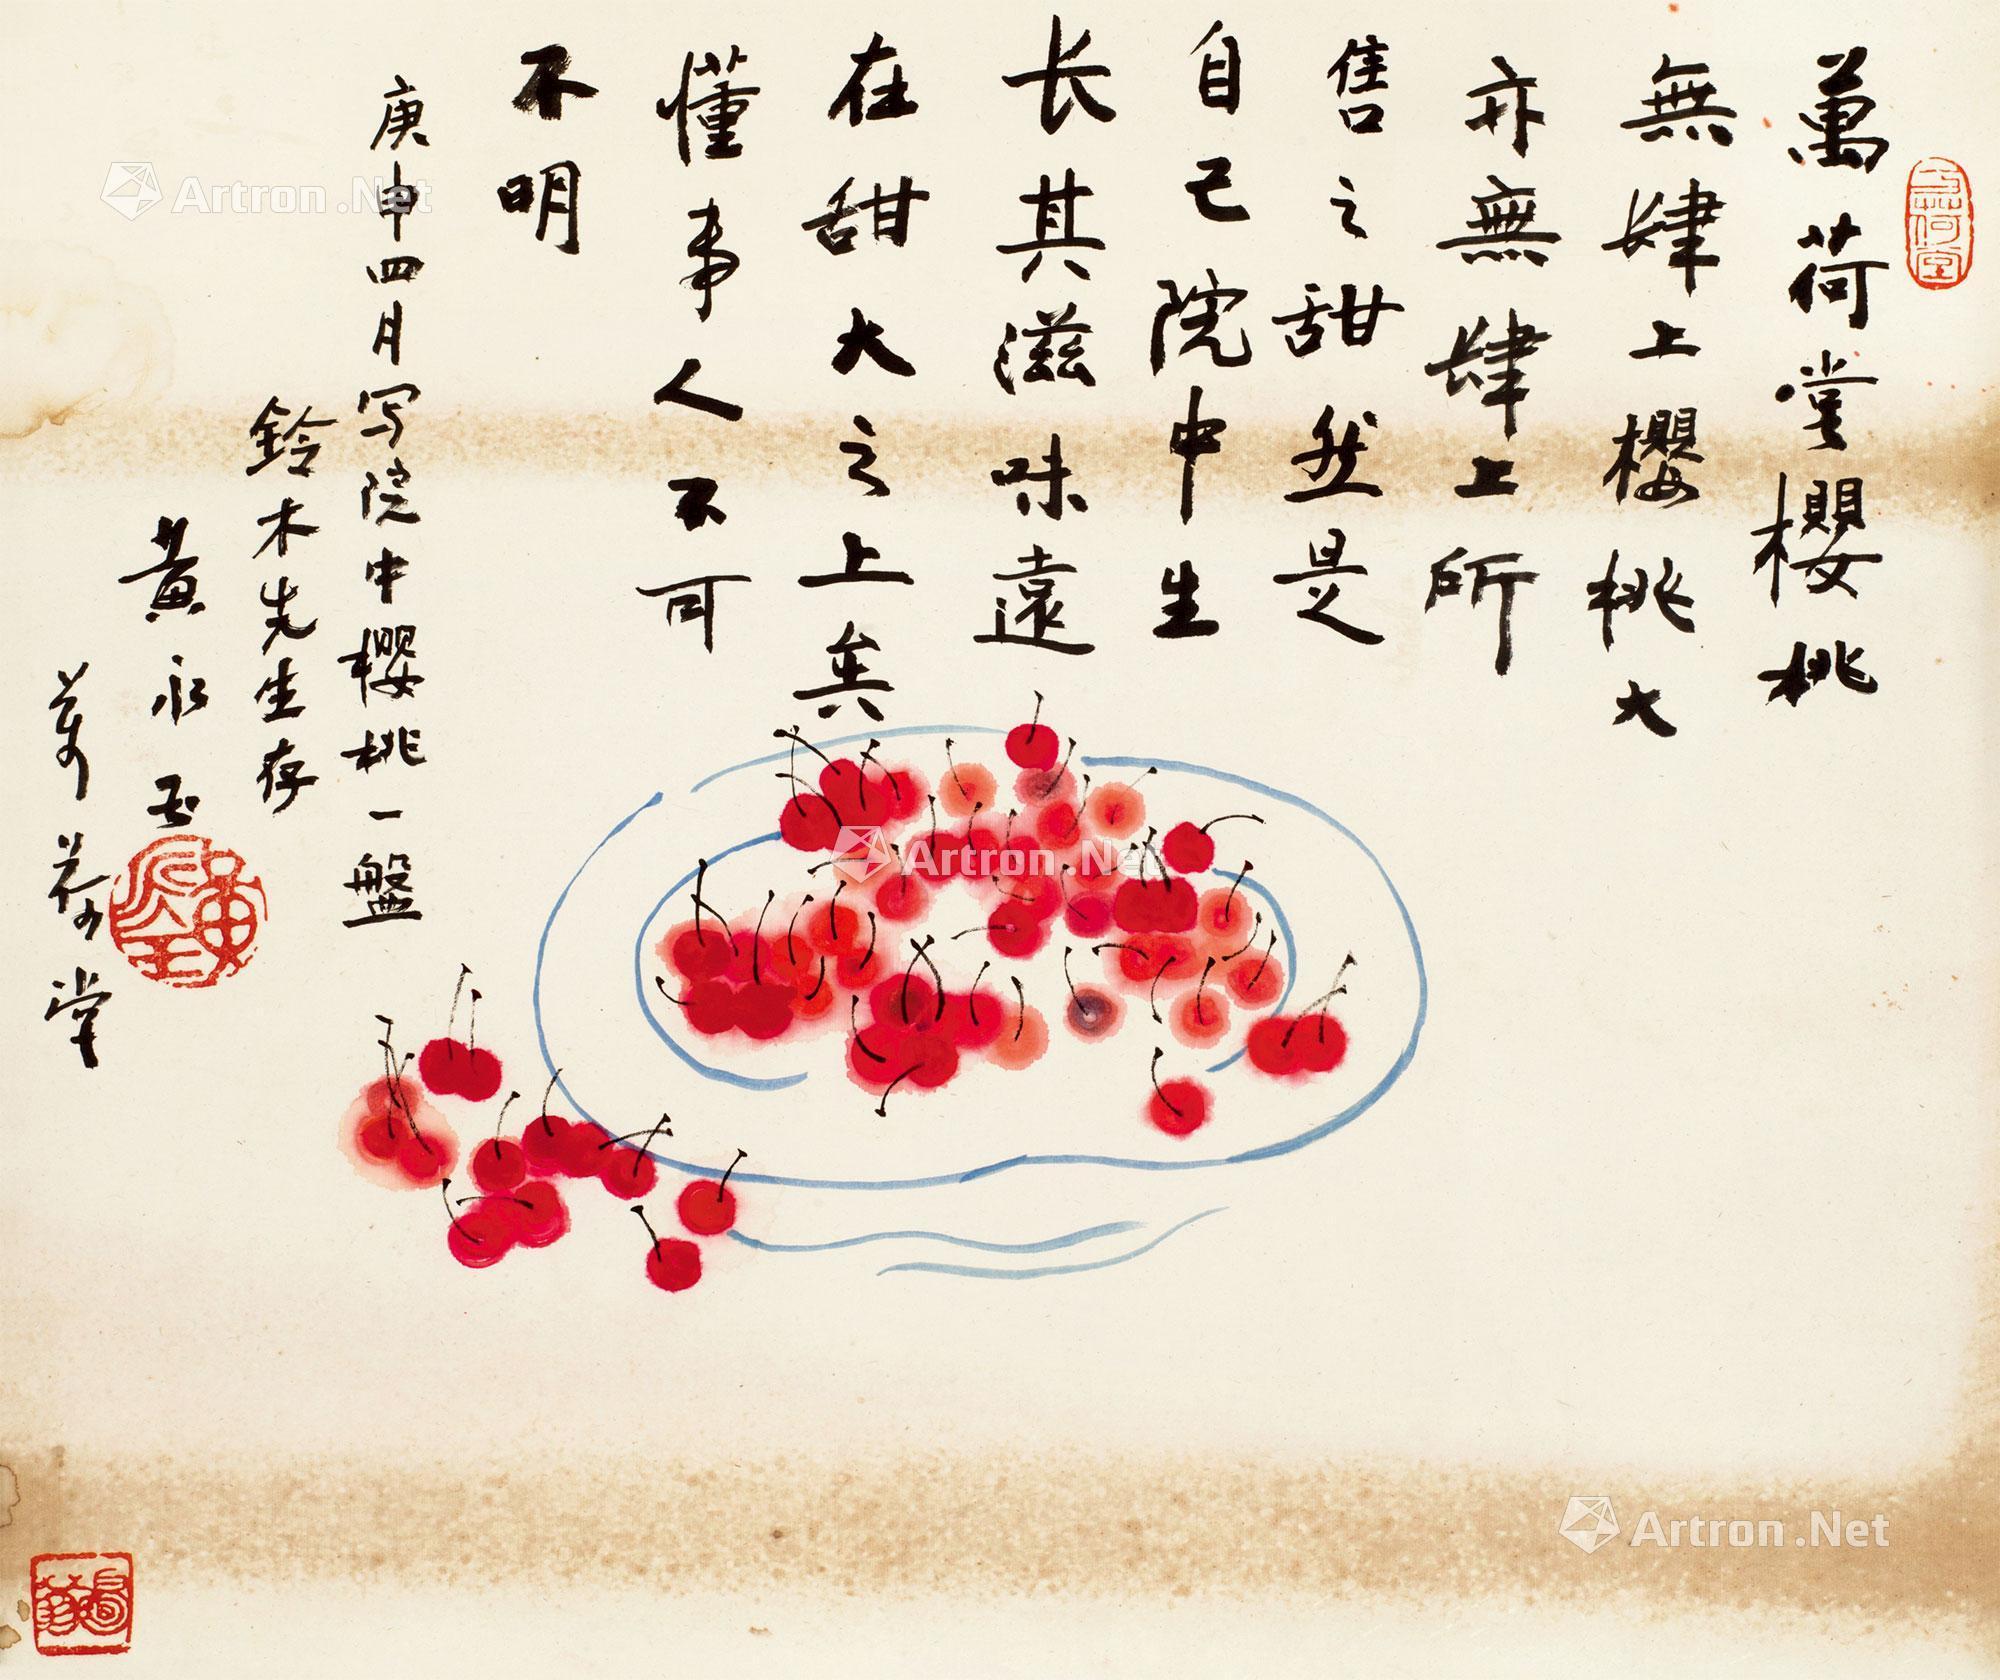 萬荷堂櫻桃
無肆上櫻桃大
亦無肆上所
售之甜然是
自己院中生
长其滋味遠
在甜大之上矣
懂事人不可
不明
庚申四月写院中櫻桃一盤
鈴木先生存
黄永玉
萬荷堂
萬荷堂
黄永玉
Artron.Net
Artron.Net
Artron.Net